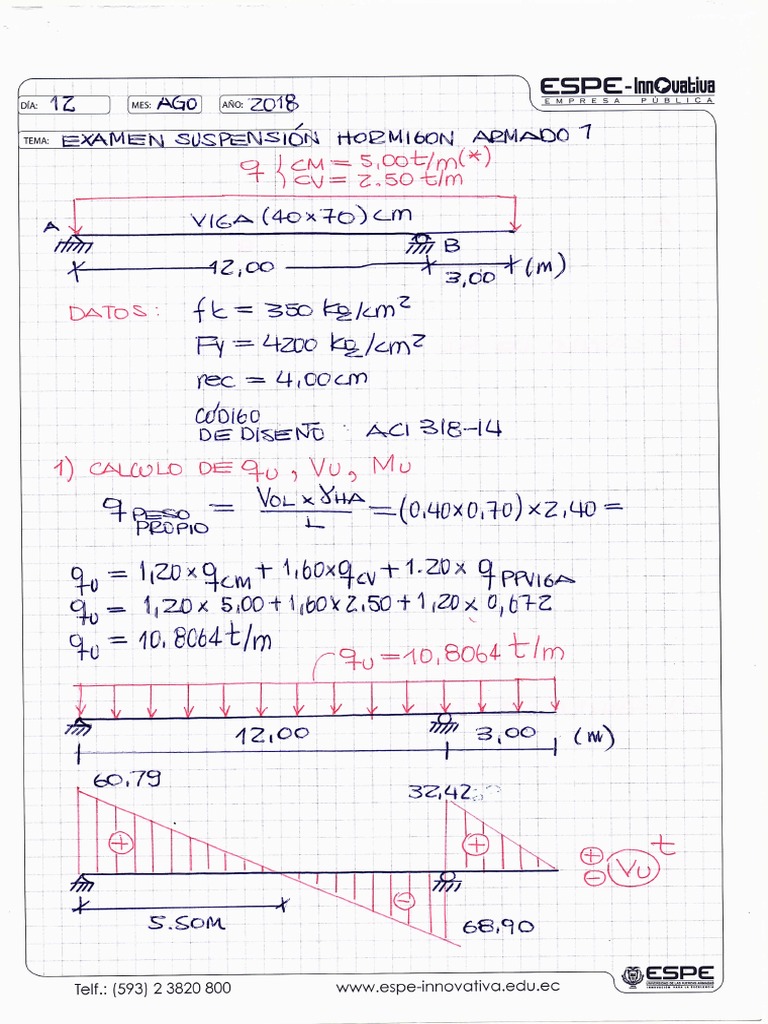 ESPE-InnOvativa
EMPRESA PÚBLICA
DÍA: 12 MES: AGO AÑO: 2018
TEMA: EXAMEN SUSPENSIÓN HORMIGON ARMADO 1
q { CM = 5,00 t/m (*)
CV = 2.50 t/m
VIGA (40x70) cm
A B
12,00 3,00 (m)
DATOS: f'c = 350 kg/cm²
Fy = 4200 kg/cm²
rec = 4,00 cm
CÓDIGO
DE DISEÑO : ACI 318-14
1) CALCULO DE qu, Vu, Mu
q PESO PROPIO = VOL x γHA / L = (0,40x0,70) x 2,40 =
qu = 1,20 x qCM + 1,60 x qCV + 1.20 x qPPVIGA
qu = 1,20 x 5,00 + 1,60 x 2,50 + 1,20 x 0,672
qu = 10.8064 t/m
qu = 10,8064 t/m
12,00 3,00 (m)
60,79
32,42
+ + + Vu t
- -
5.50M
68,90
ESPE
Telf.: (593) 2 3820 800 www.espe-innovativa.edu.ec